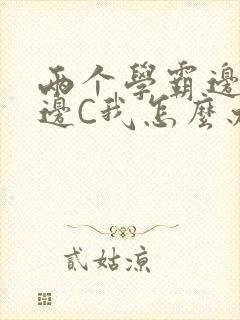 兩个學霸邊
邊C我怎麼
貳姑涼